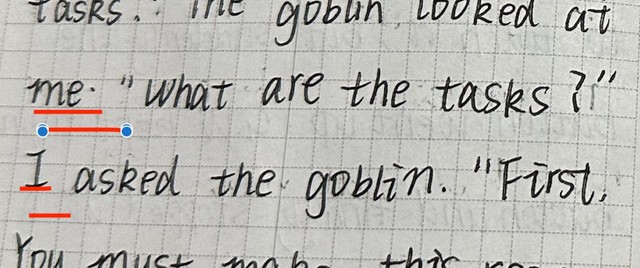 tasks." The goblin looked at
me. "What are the tasks?"
I asked the goblin. "First,
You must make this